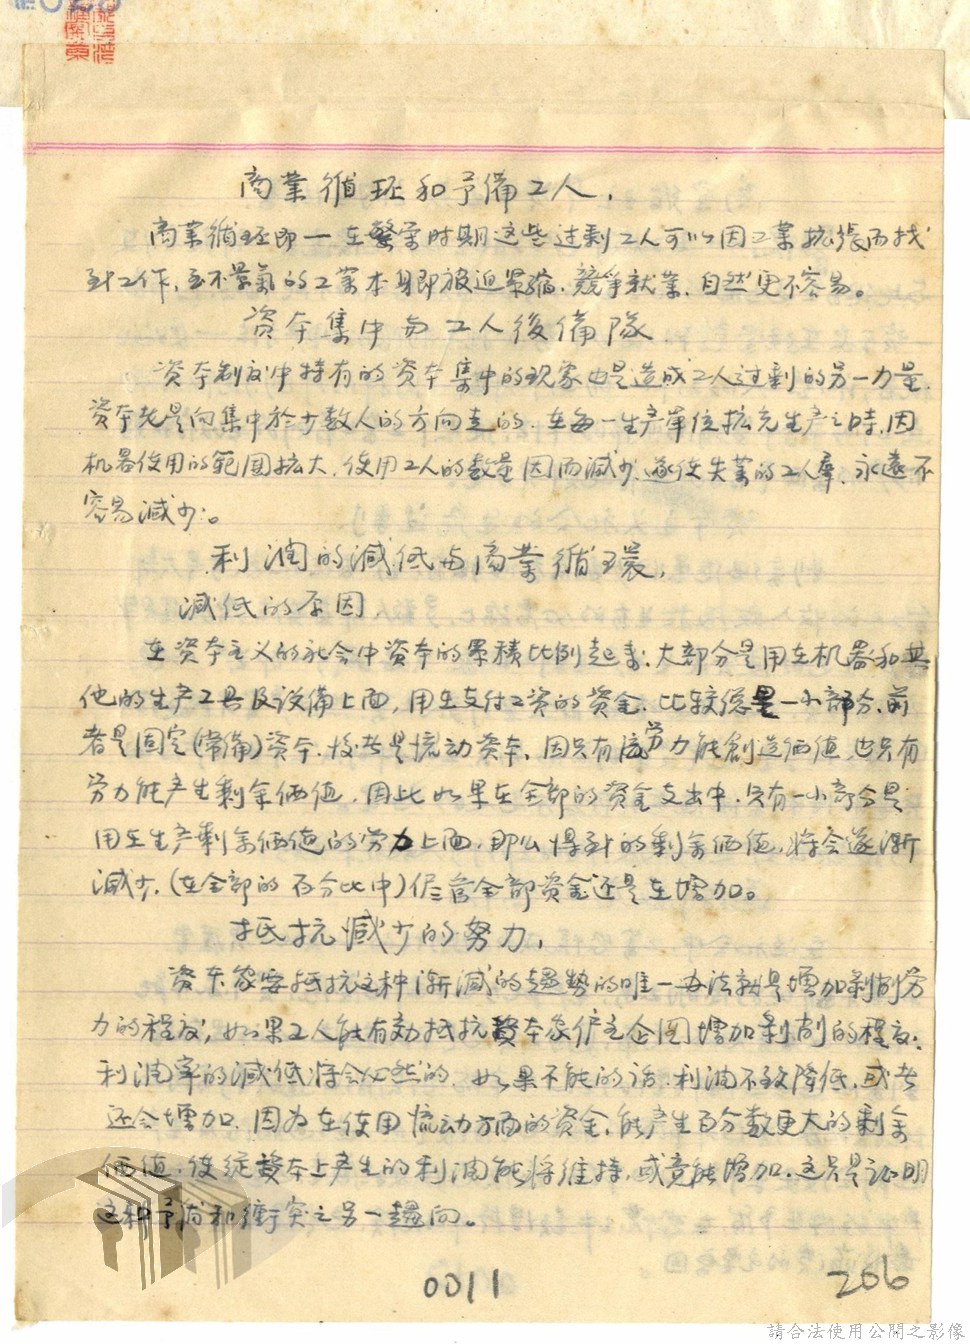 商業循环和予備工人，
商業循环即一在繁荣时期这些过剩工人可以因工業拡張而找
到工作，至不景氣的工業本身即被迫緊縮，競争就業，自然更不容易。
资本集中与工人後備隊
资本制度中特有的资本集中的现象也是造成工人过剩的另一力量，
资本老是向集中於少数人的方向走的，在每一生产单位拡充生产之時，因
机器使用的範囲拡大，使用工人的数量因而減少，遂使失業的工人羣，永遠不
容易減少。
利潤的減低与商業循環，
減低的原因
在资本主义的社会中资本的累積比例起来，大部分是用在机器和其
他的生产工具及设備上面，用在支付工资的资金，比较總是一小部分，前
者是固定(常備)资本，後者是流动资本，因只有劳力能創造価值，也只有
劳力能产生剩余価值，因此如果在全部的资金支出中，只有一小部分是
用在生产剩余価值的劳力上面，那么得到的剩余価值，将会逐漸
減少，(在全部的百分比中)侭管全部资金还是在增加。
抵抗減少的努力，
资本家要抵抗这种漸減的趨勢的唯一办法就是增加剥削劳
力的程度，如果工人能有効抵抗资本家僱主企图增加剥削的程度，
利潤率的減低将会必然的，如果不能的话，利潤不致降低，或者
还会增加，因为在使用流动方面的资金，能产生百分数更大的剩余
価值，使從资本上产生的利潤能将維持，或竟能增加，这只是证明
这种予盾和衝突之另一趨向。
0011
206
請合法使用公開之影像